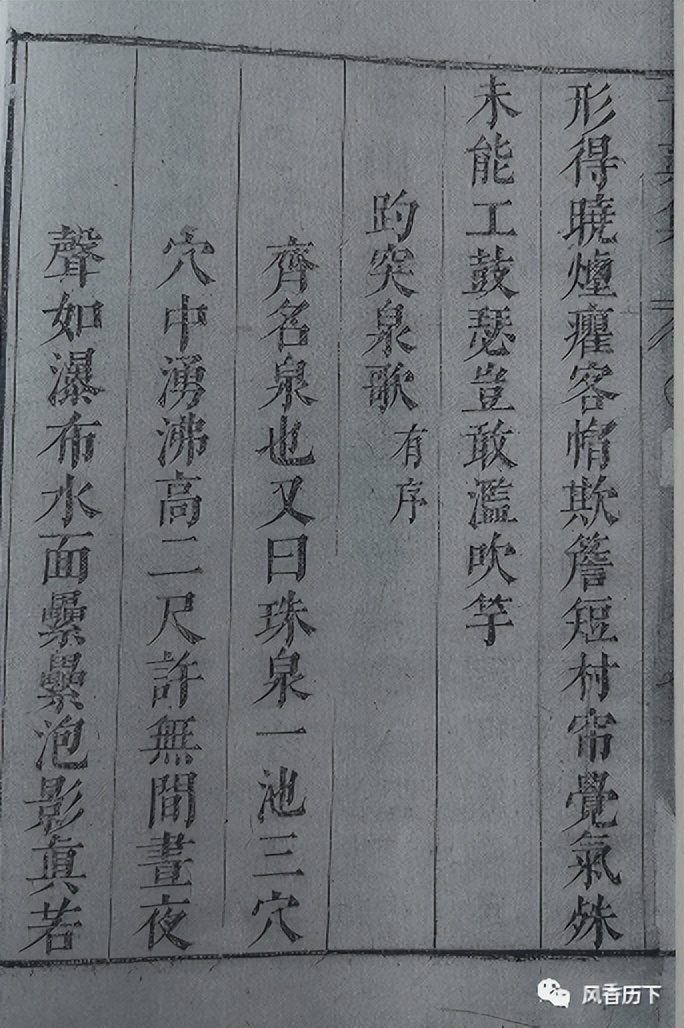 形得曉爐癯客惜欺簷短村帘覺氣殊
未能工鼓瑟豈敢濫吹竽
趵突泉歌有序
齊名泉也又曰珠泉一池三穴
穴中湧沸高二尺許無間晝夜
聲如瀑布水面纍纍泡影真若
风香历下